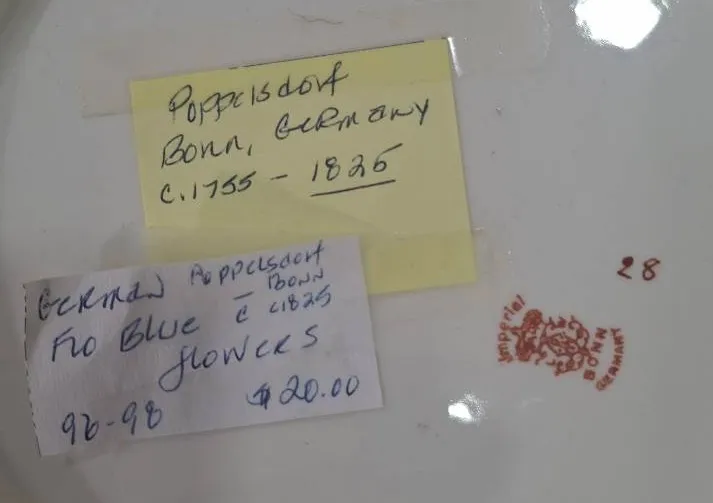 Poppelsdorf
Bonn, Germany
c.1755 - 1825
German Poppelsdorf
- Bonn
Flo Blue c c1825
flowers
96-98 $20.00
28
Imperial
BONN
GERMANY